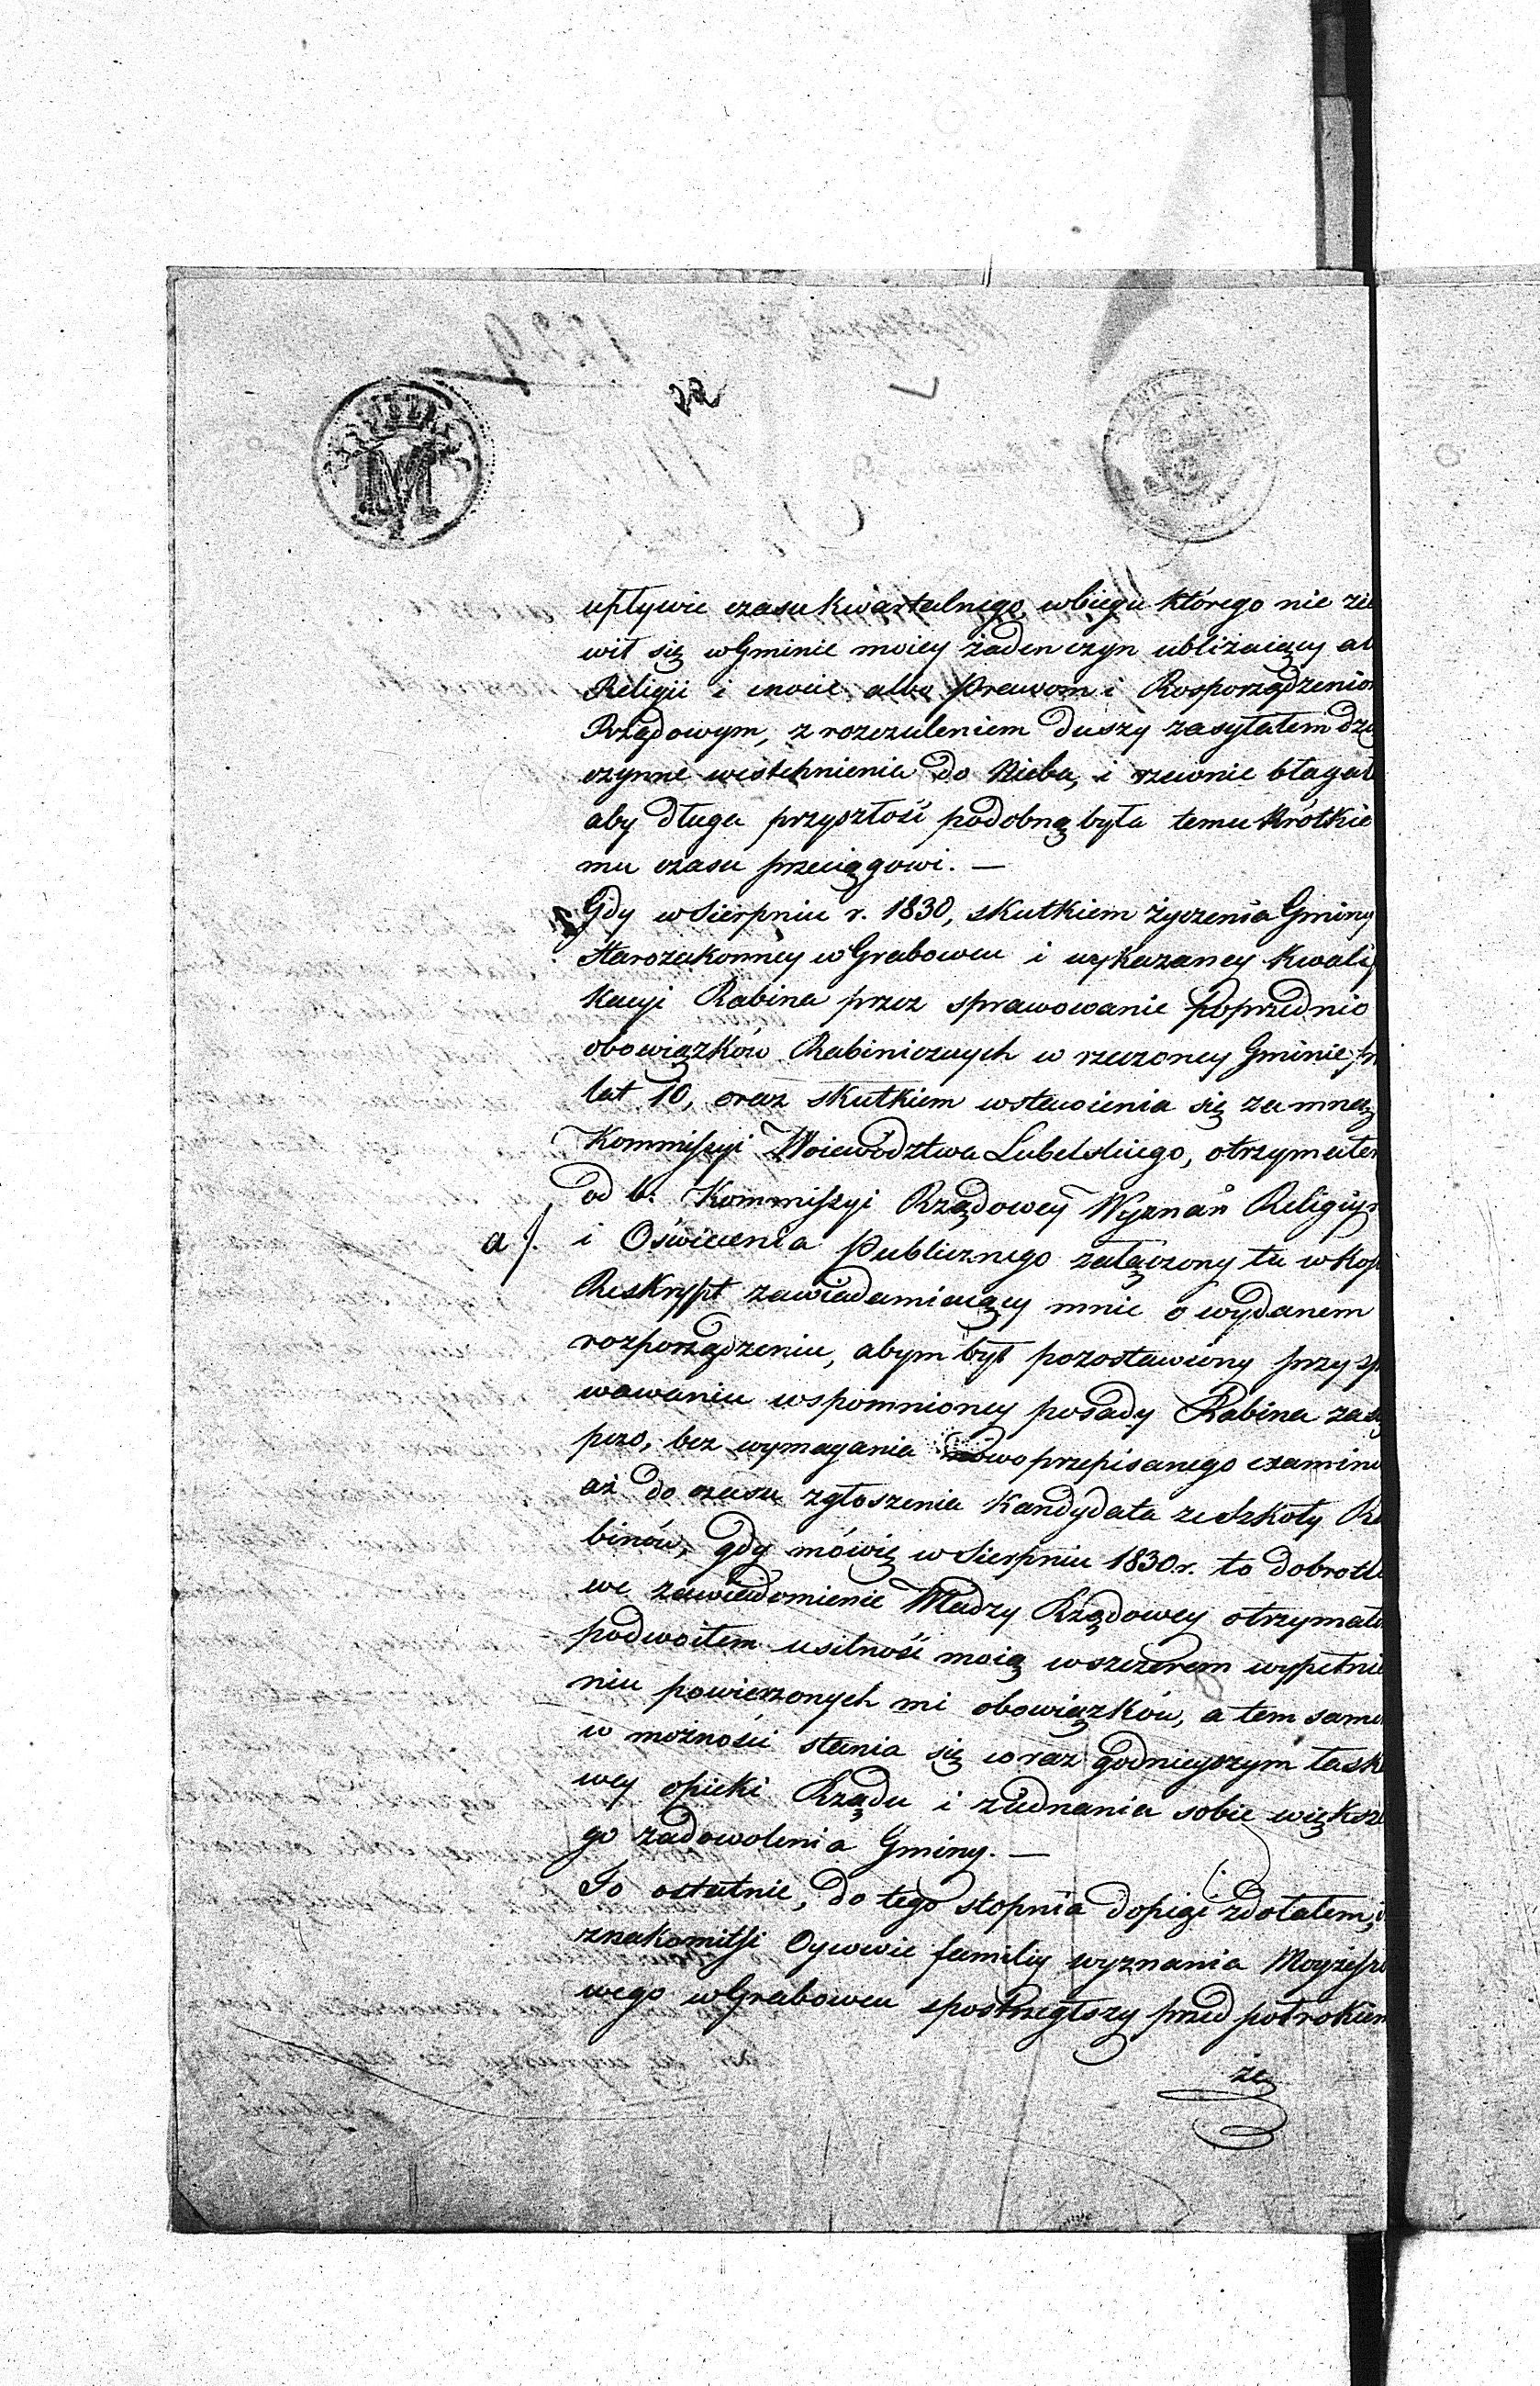 22
M
upływie czasu kwartalnego, wbiegu którego nie zia
wił się w Gminie moiey żaden czyn ubliżaiący al
Religii i cnocie albo Prawom i Rosporządzenio
Rządowym, z rozczuleniem duszy zasyłałem dzię
czynne westchnienia do Nieba, i rzewnie błagał
aby długa przyszłość podobną była temu krótkie
mu czasu przeciągowi. —
Gdy w Sierpniu r. 1830, skutkiem życzenia Gminy
Starozakonney w Grabowcu i wykazaney kwalif
kacyi Rabina przez sprawowanie poprzednio
obowiązków Rabinicznych w rzeczoney Gminie pr
lat 10, oraz skutkiem wstawienia się za mną
Kommissyi Woiewództwa Lubelskiego, otrzymałem
od b. Kommissyi Rządowey Wyznań Religiyn
a/. i Oświecenia Publicznego załączony tu w kop
Reskrypt zawiadamiaiący mnie o wydanem
rozporządzeniu, abym był pozostawiony przy sp
wowaniu wspomnioney posady Rabina zastę
pczo, bez wymagania nowo przepisanego examinu
aż do czasu zgłoszenia kandydata ze Szkoły Ra
binów, gdy mówię w Sierpniu 1830 r. to dobrotli
we zawiadomienie Władzy Rządowey otrzymałe
podwoiłem usilność moią w szczerem wypełnie
niu powierzonych mi obowiązków, a tem same
w możności stania się coraz godnieyszym łaska
wey opieki Rządu i ziednania sobie większe
go zadowolenia Gminy. —
To ostatnie, do tego stopnia dopiąć zdołałem, i
znakomitsi Oycowie familiy wyznania Moyżeszo
wego w Grabowcu spostrzegłszy przed półrokiem
że